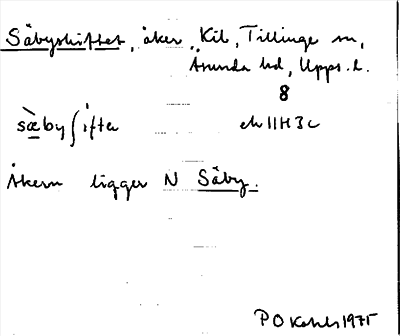 Säbyskiftet, åker, Kil, Tillinge sn,
Åsunda hd, Upps. l.
8
sæ̀byʃifte ek 11H3c
Åkern ligger N Säby.
P O 1975